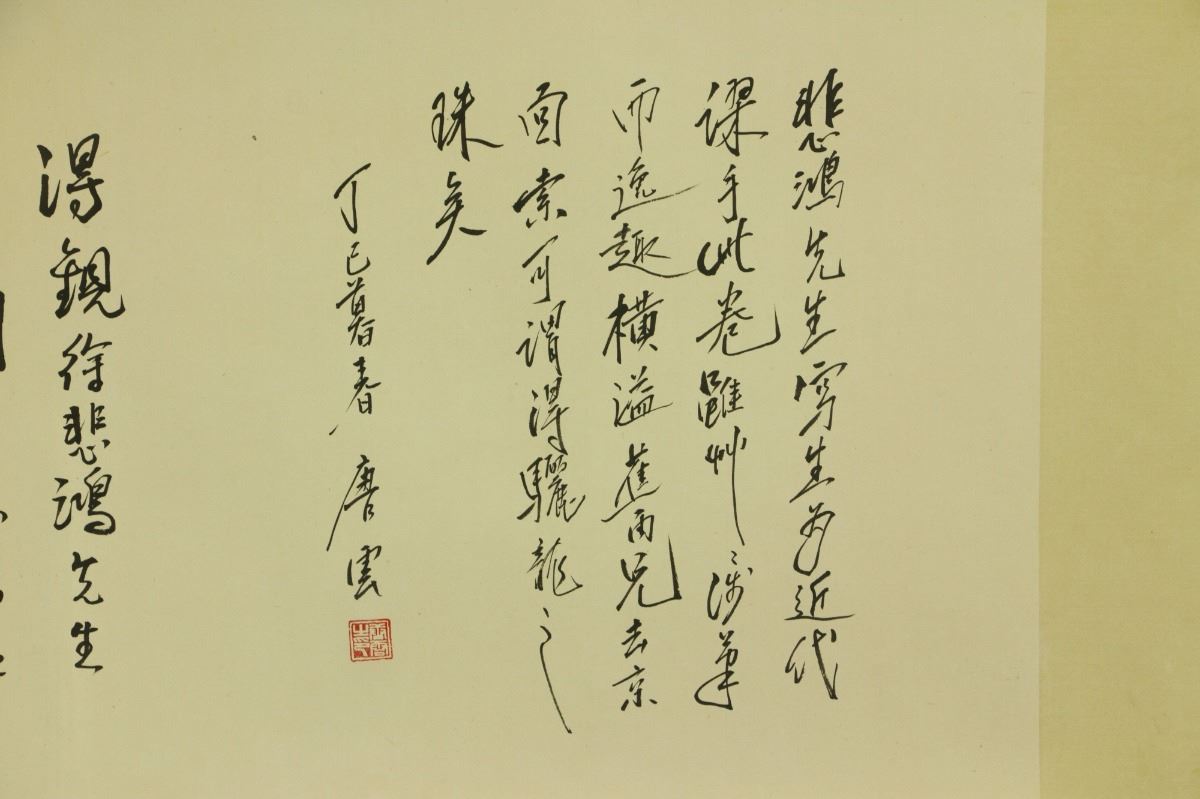 悲鴻先生寫生為近代
手此卷雖艸〻涉筆
而逸趣橫溢兄去京
面索可謂得驪龍之
珠矣
丁巳暮春 唐雲
得觀徐悲鴻先生